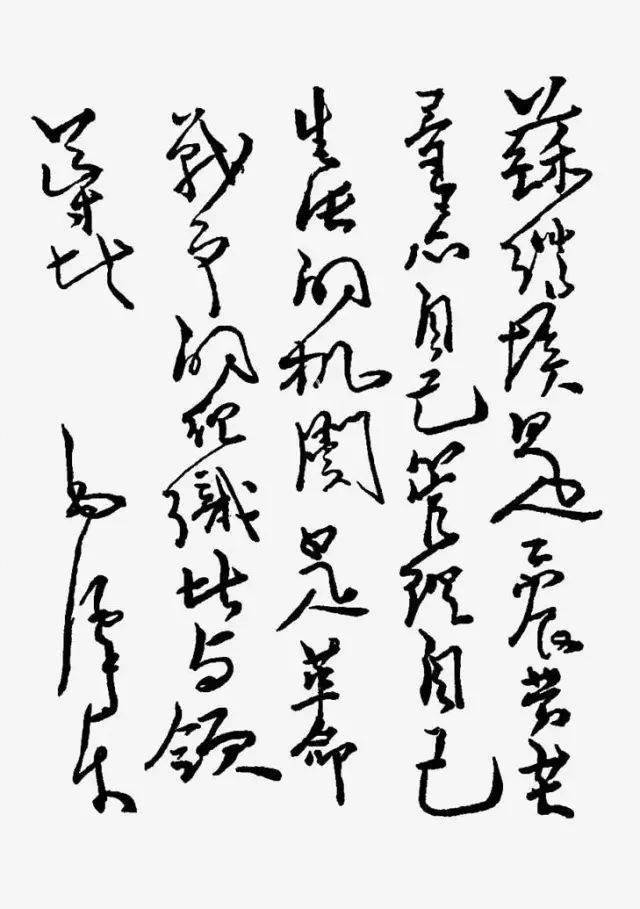 蘇維埃是工農勞苦
羣眾自己管理自己
生活的机關是革命
戰爭的組織者与領
導者 毛澤東